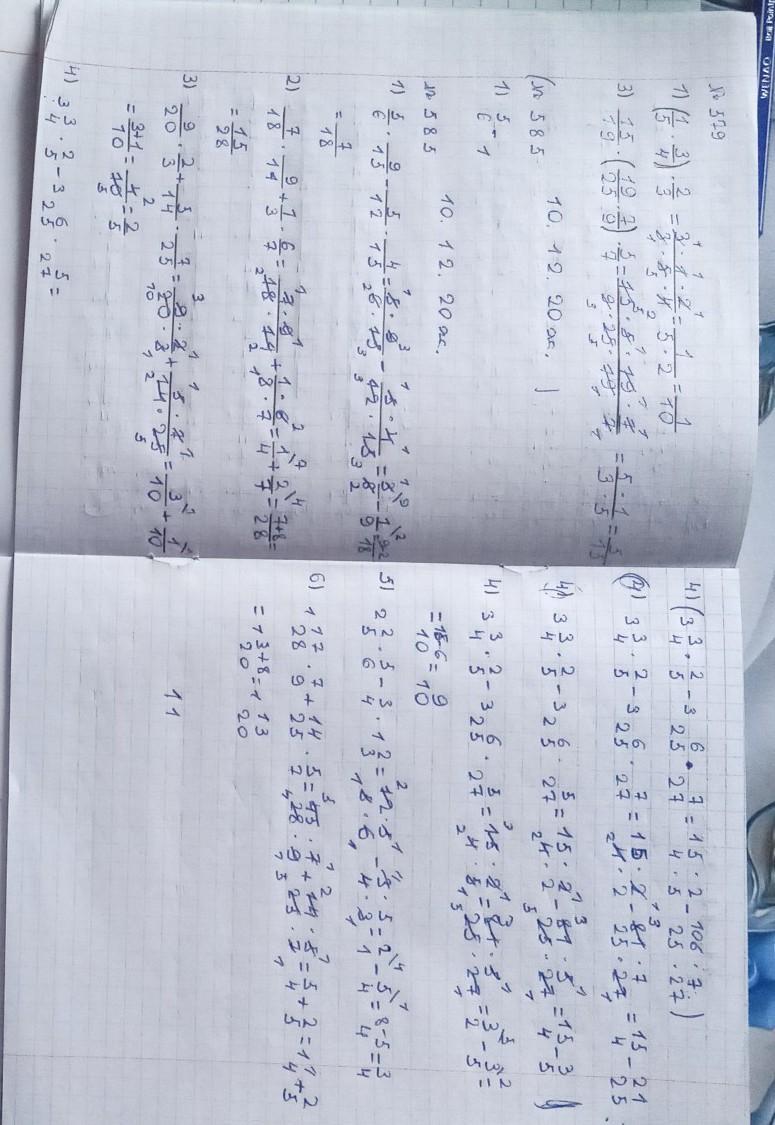 № 579
1) (1/5 · 3/4) · 2/3 = 3·1·2/3·5·4 = 1/5·2 = 1/10
3) 15/19 · (19/25 · 7/9) · 5/7 = = 5·1/3·5 =
(№ 585 10. 12. 20ж. )
1) 5/6 - 1
№ 585 10. 12. 20ж.
1) 5/6 · 9/15 - 5/12 · 4/15 = 5·9/6·15 - 5·4/12·15 =
= 7/18
2) 7/18 · 9/14 + 1/3 · 6/7 = 7·9/18·14 + 1·6/3·7 = 1/4 + 2/7 = 7+8/28 =
= 15/28
3) 9/20 · 2/3 + 5/14 · 7/25 = 9·2/20·3 + 5·7/14·25 = 3/10 + 1/10
= 3+1/10 = 4/10 = 2/5
4) 3 3/4 · 2/5 - 3 6/25 · 5/27 =
4) (3 3/4 · 2/5 - 3 6/25 · 7/27 = 15·2/4·5 - 106·7/25·27 )
(4) 3 3/4 · 2/5 - 3 6/25 · 7/27 = = 15/4 - 21/25
(4) 3 3/4 · 2/5 - 3 6/25 · 5/27 = = 15/4 - 3/5 )
4) 3 3/4 · 2/5 - 3 6/25 · 5/27 = 15·2/4·5 - 81·5/25·27 = 3/2 - 3/5 =
= 15-6/10 = 9/10
5) 2 2/5 · 5/6 - 3/4 · 1 2/3 = 12·5/5·6 - 3·5/4·3 = 2/1 - 5/4 = 8-5/4 = 3/4
6) 1 17/28 · 7/9 + 14/25 · 5/7 = 45·7/28·9 + 14·5/25·7 = 5/4 + 2/5 = 1 1/4 + 2/5
= 1 3+8/20 = 1 13/20
11